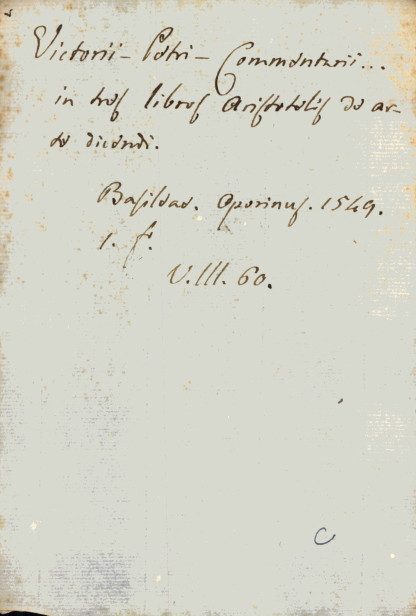 Victorii – Petri – Commentarii...
in tres libros Aristotelis de ar-
te dicendi.
Basileae. Oporinus. 1549.
1. f.
V. III. 60.
C